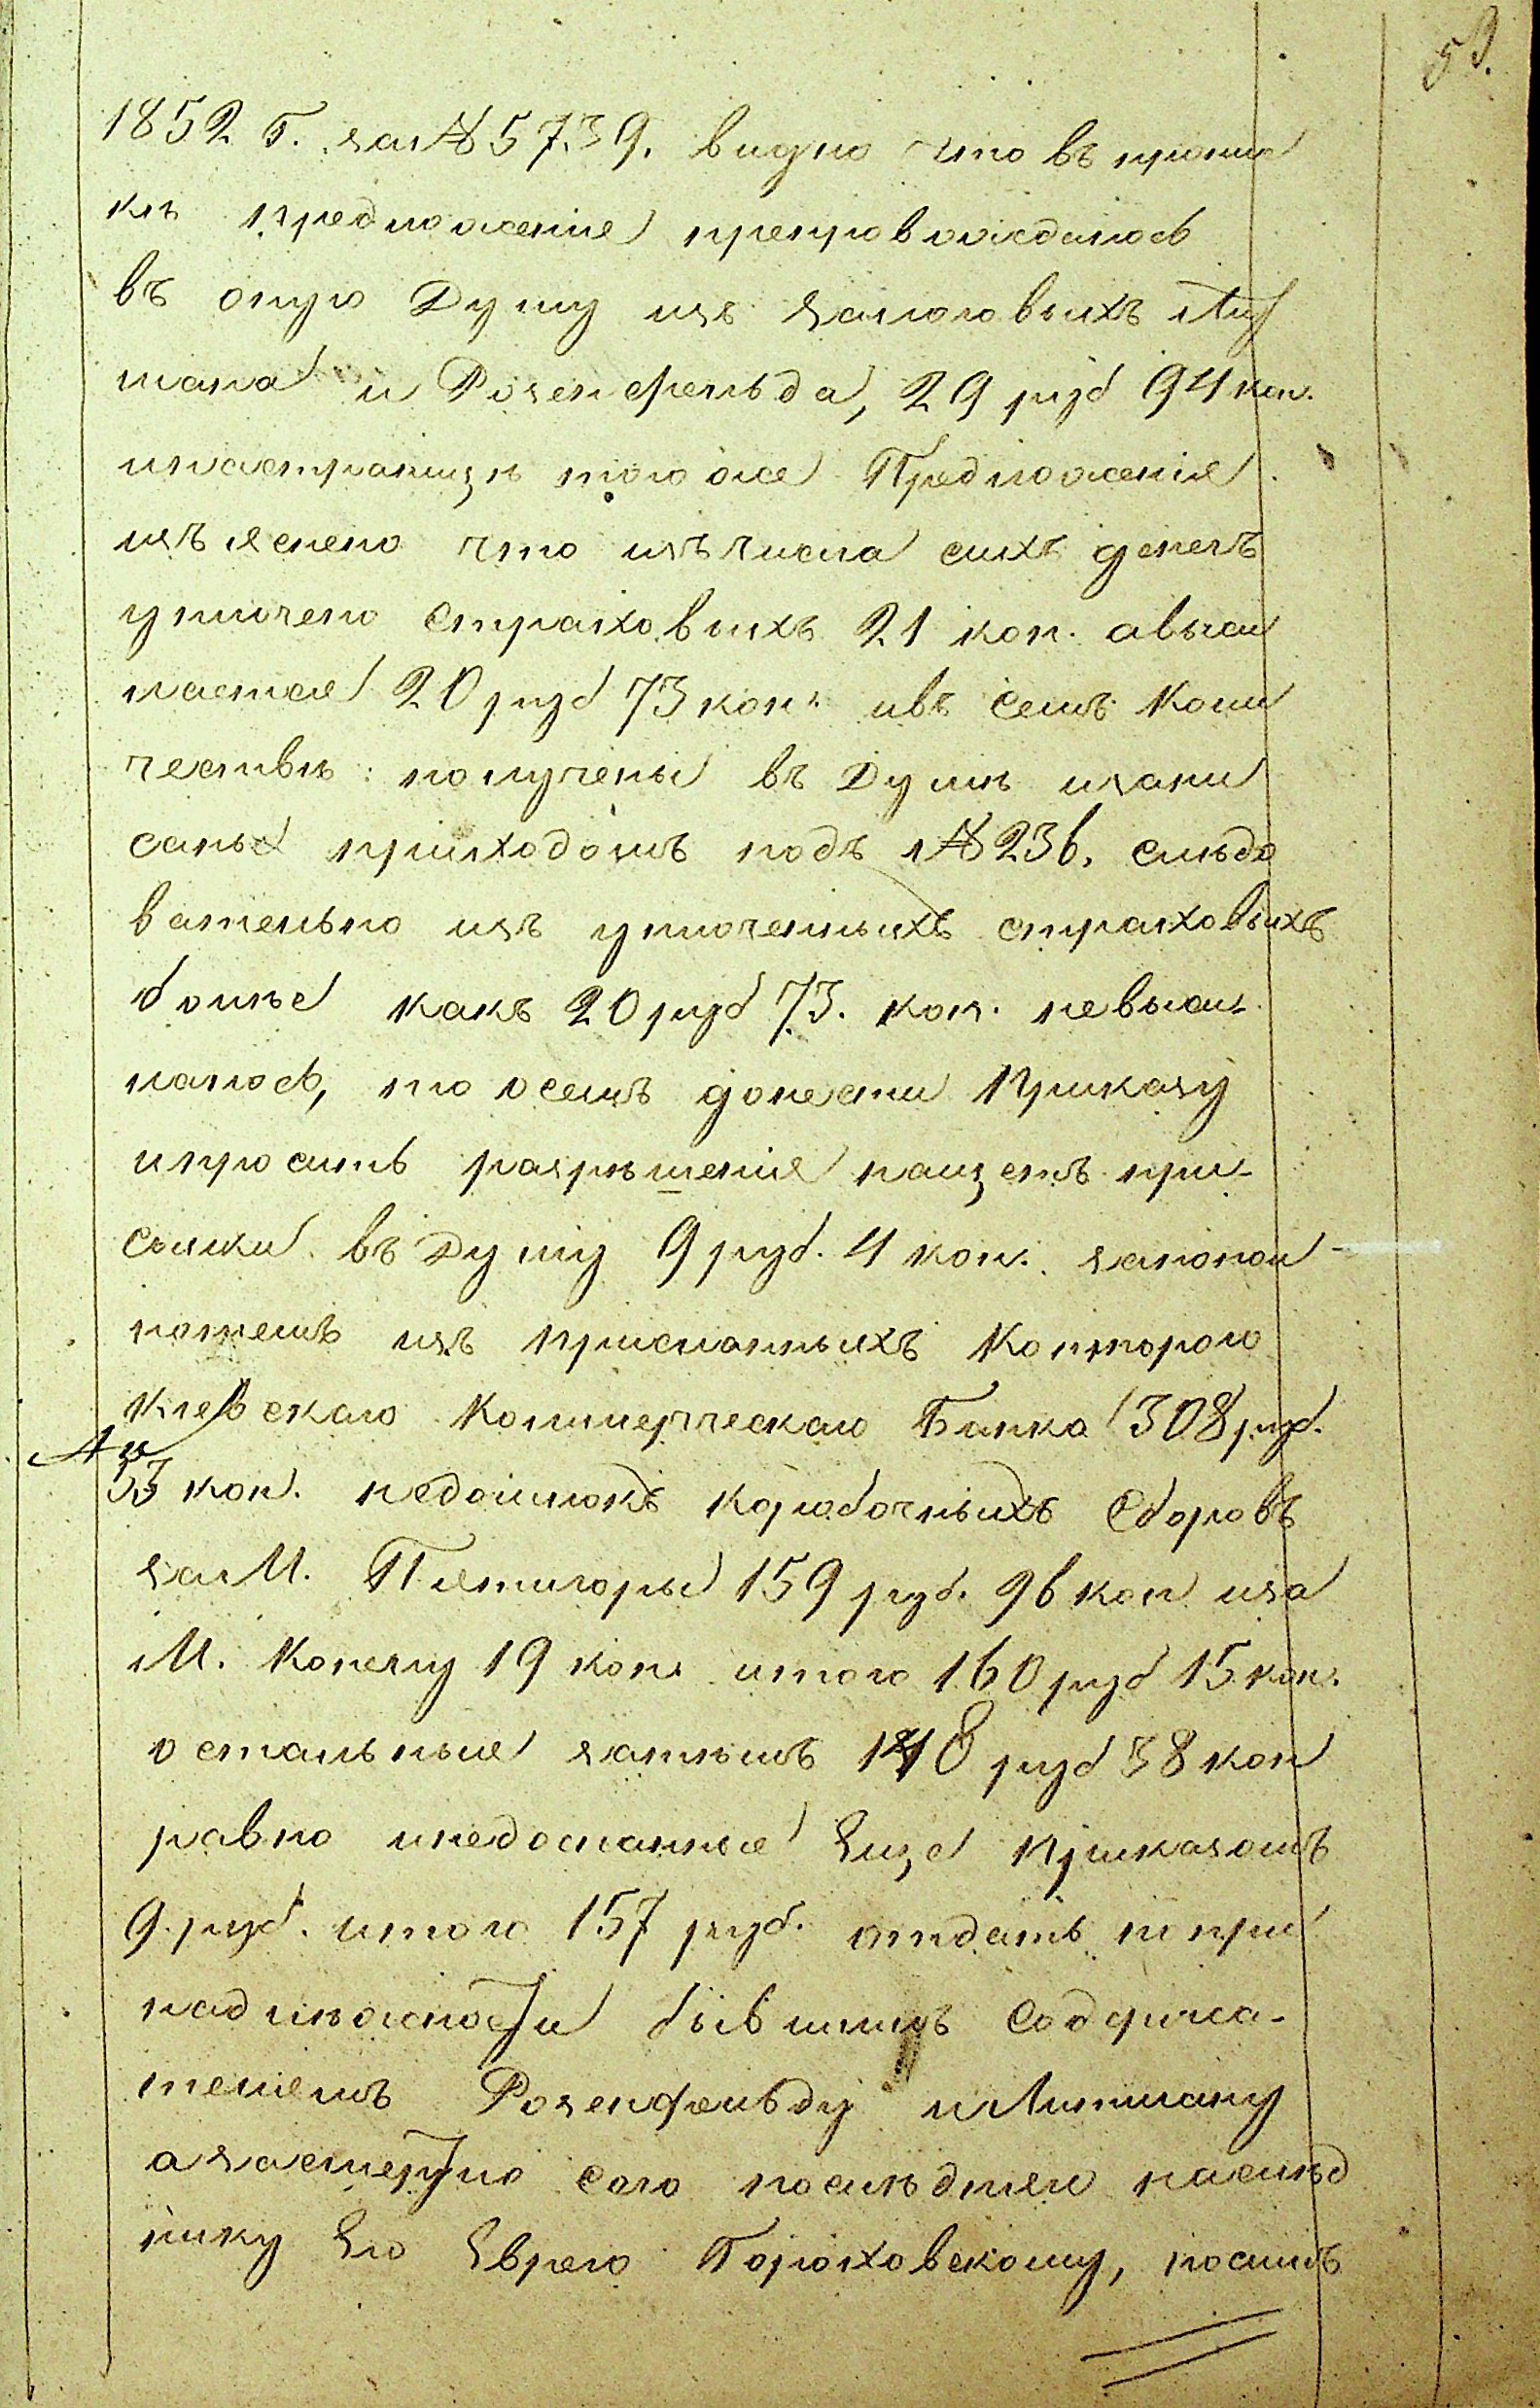 59.
1852 г. за № 5739. видно что въ проти
къ предложение препровождалось
въ оную Думу изъ залоговыхъ Лит
мана и Розенфельда, 29 руб 94 коп.
настранице того же Предложения
изъяснено что изъ числа сихъ денегъ
уплочено страховыхъ 21 коп. авысы
лается 20 руб 73 коп. ивъ семъ коли
чествѣ получены въ Думѣ изапи
саны приходомъ подъ № 236. слѣдо
вательно изъ уплоченныхъ страховыхъ
болѣе какъ 20 руб 73. коп. невысы
лалось, то осемъ донести Приказу
ипросить разрѣшения нащетъ при-
сылки въ Думу 9 руб. 4 коп. запопол-
нениемъ изъ присланныхъ Конторою
Киевскаго Коммерческаго Банка 308 руб.
53 коп. недоимокъ коробочныхъ сборовъ
за М. Пятигоры 159 руб. 96 коп иза
М. Конелу 19 коп. итого 160 руб 15 коп.
остальные затѣмъ 148 руб 38 коп
равно инедосланные Еще Приказомъ
9 руб. итого 157 руб. отдать попри
надлѣжности бывшимъ Содержа-
телемъ Розенфельду иЛитману
азасмертию сего послѣдняго наслѣд
нику Его Еврею Гороховскому, посимъ